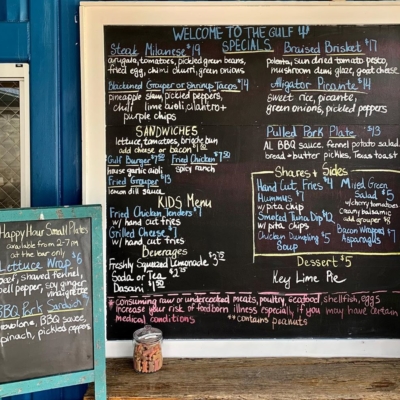 WELCOME TO THE GULF
SPECIALS
Steak Milanese $19
arugula, tomatoes, pickled green beans,
fried egg, chimi churri, green onions
Blackened Grouper or Shrimp Tacos $14
pineapple slaw, pickled peppers,
chili lime aioli, cilantro +
purple chips
SANDWICHES
lettuce, tomatoes, bun
add cheese or bacon
Gulf Burger
house garlic aioli
Fried Chicken
spicy ranch
Fried Grouper $13
lemon dill sauce
KIDS Menu
Fried Chicken Tenders $7
w/ hand cut fries
Grilled Cheese
w/ hand cut fries
Beverages
Freshly Squeezed Lemonade
Soda or Tea
Dasani
Braised Brisket $17
polenta, sun dried tomato pesto,
mushroom demi glaze, goat cheese
Alligator Picante $14
sweet rice, picante,
green onions, pickled peppers
Pulled Pork Plate $13
AL BBQ sauce, fennel potato salad
bread + butter pickles, Texas toast
Shares + Sides
Hand Cut Fries $4
Hummus $7
w/ pita chip
Smoked Tuna Dip $12
w/ pita chips
Chicken Dumpling $5
Soup
Mixed Green
Salad $5
w/ cherry tomatoes
creamy balsamic
add grouper
Bacon Wrapped $7
Asparagus
Dessert $5
Key Lime Pie
* consuming raw or undercooked meats, poultry, seafood, shellfish, eggs
increase your risk of foodborn illness especially if you may have certain
medical conditions **contains peanuts
Happy Hour Small Plates
available from 2-7 pm
at the bar only
Lettuce Wrap $6
beef, shaved fennel,
bell pepper, soy ginger
vinaigrette
BBQ Pork Sandwich
provolone, BBQ sauce,
spinach, pickled peppers